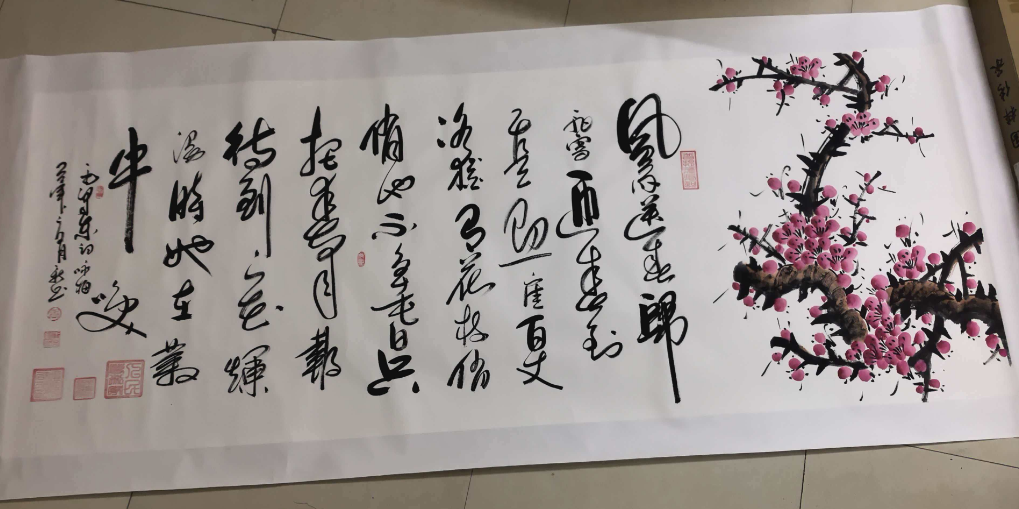 風雨送春歸
飛雪迎春到
已是懸崖百丈
冰猶有花枝俏
俏也不爭春只
把春來報
待到山花爛
漫時她在叢
中笑
毛澤東詞咏梅